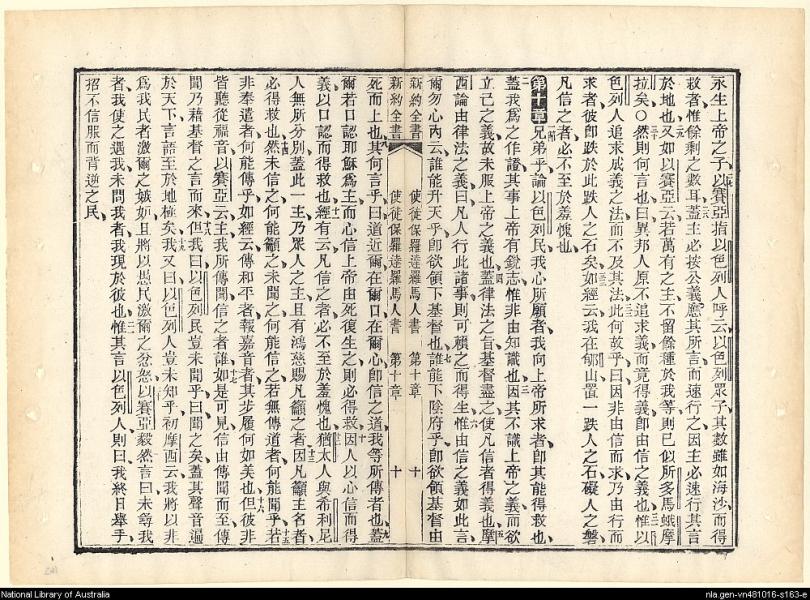 永生上帝之子以賽亞指以色列人呼云以色列眾子其數雖如海沙而得
救者惟餘剩之數耳蓋主必按公義應其所言而速行之因主必速行其言
於地也又如以賽亞云若萬有之主不留餘種於我等則已似所多馬蛾摩
拉矣○然則何言也曰異邦人原不追求義而竟得義即由信之義也惟以
色列人追求成義之法而不及其法此何故乎曰因非由信而求乃由行而
求者彼即跌於此跌人之石矣如經云我在郇山置一跌人之石礙人之磐
凡信之者必不至於羞愧也
第十章 兄弟乎論以色列民我心所願者我向上帝所求者即其能得救也
蓋我為之作證其事上帝有銳志惟非由知識也因其不識上帝之義而欲
立己之義故未服上帝之義也蓋律法之旨基督盡之使凡信者得義也摩
西論由律法之義曰凡人行此諸事則可賴之而得生惟由信之義如此言
爾勿心內云誰能升天乎即欲領下基督也誰能下陰府乎即欲領基督由
新約全書 使徒保羅達羅馬人書 第十章 十
新約全書 使徒保羅達羅馬人書 第十章 十
死而上也其何言乎曰道近爾在爾口在爾心即信之道我等所傳者也蓋
爾若口認耶穌為主而心信上帝由死復生之則必得救因人以心信而得
義以口認而得救也經有云凡信之者必不至於羞愧也猶太人與希利尼
人無所分別蓋此一王乃眾人之主且有鴻慈賜凡籲之者因凡籲主名者
必得救也然未信之何能籲之未聞之何能信之若無傳道者何能聞乎若
非奉遣者何能傳乎如經云傳和平者報嘉音者其步履何如美也但彼非
皆聽從福音以賽亞云主我所傳聞信之者誰如是可見信由傳聞而至傳
聞乃藉基督之言而來但我曰以色列民豈未聞乎曰聞之矣蓋其聲音遍
於天下言語至於地極矣我又曰以色列人豈未知乎初摩西云我將以非
為我民者激爾之嫉妒且將以愚民激爾之忿怒以賽亞毅然言曰未尋我
者我使之遇我未問我者我現於彼也惟其言以色列人則曰我終日舉手
招不信服而背逆之民
National Library of Australia
nla.gen-vn481016-s163-e